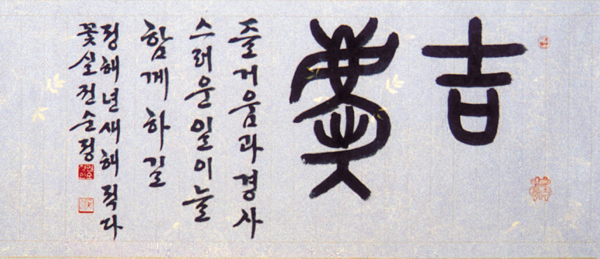 吉慶
즐거움과경사
스러운일이늘
함께하길
정해년새해적다
꽃실전순정